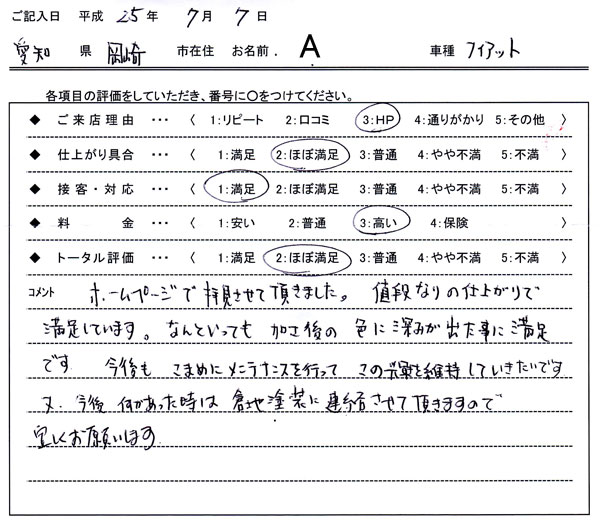 ご記入日 平成 25年 7月 7日
愛知 県 岡崎 市在住 お名前. A 車種 フィアット
各項目の評価をしていただき、番号に○をつけてください。
◆ ご来店理由 ・・・ 〈 1:リピート 2:口コミ 3:HP 4:通りがかり 5:その他 〉
◆ 仕上がり具合 ・・・ 〈 1:満足 2:ほぼ満足 3:普通 4:やや不満 5:不満 〉
◆ 接客・対応 ・・・ 〈 1:満足 2:ほぼ満足 3:普通 4:やや不満 5:不満 〉
◆ 料金 ・・・ 〈 1:安い 2:普通 3:高い 4:保険 〉
◆ トータル評価 ・・・ 〈 1:満足 2:ほぼ満足 3:普通 4:やや不満 5:不満 〉
コメント ホームページで拝見させて頂きました。 値段なりの仕上がりで
満足しています。なんといっても 加工後の 色に深みが出た事に満足
です. 今後も こまめにメンテナンスを行って この状態を維持していきたいです
又. 今後 何かあった時は 倉地塗装に連絡させて頂きますので
宜しくお願いします